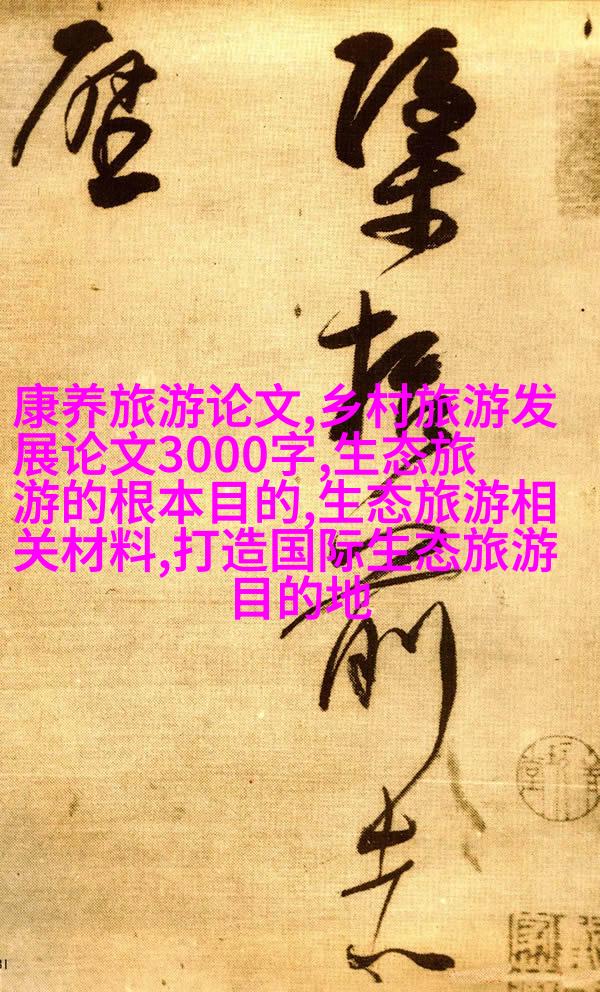 康养旅游论文,乡村旅游发
展论文3000字,生态旅
游的根本目的,生态旅游相
关材料,打造国际生态旅游
目的地
括前志